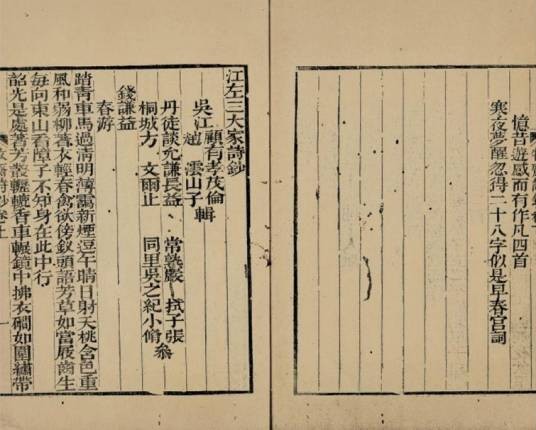 憶昔遊感而有作凡四首
寒夜夢醒忽得二十八字似是早春宮詞
江左三大家詩鈔
吳江
顧有孝茂倫
趙 澐山子
輯
丹徒談允謙長益 常熟嚴 栻子張
桐城方 文爾止 同里吳之紀小脩
參
錢謙益
春游
踏青車馬過清明薄靄新煙逗午晴日射夭桃含色重
風和弱柳著衣輕春禽欲傍釵頭語芳草如當屐齒生
每向東山看障子不知身在此中行
韶光是處著芳叢轣轆香車輾鏡中拂衣磵如圍繡帶